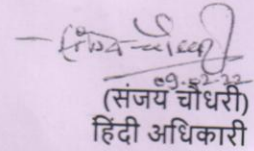 09.02.22
(संजय चौधरी)
हिंदी अधिकारी